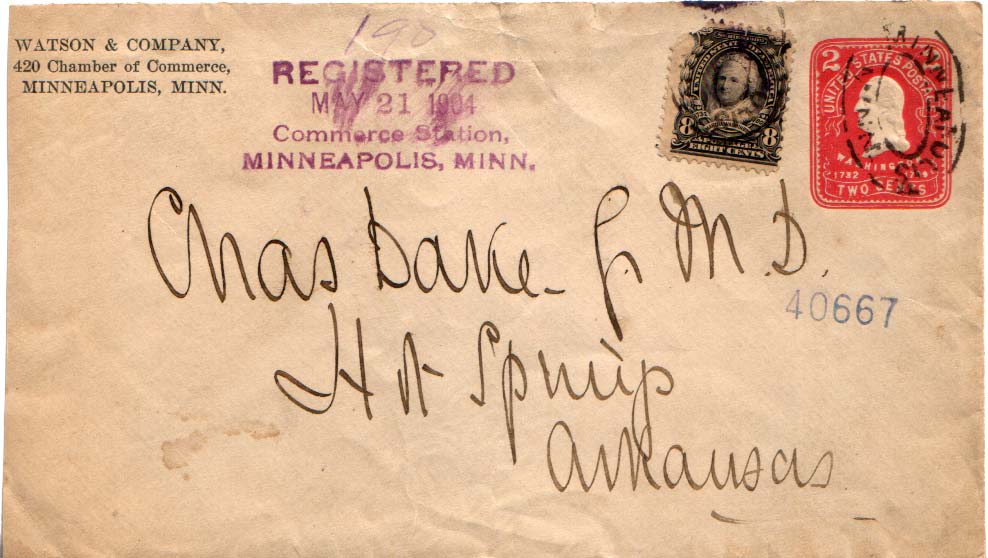 WATSON & COMPANY,
420 Chamber of Commerce,
MINNEAPOLIS, MINN.
190
REGISTERED
MAY 21 1904
Commerce Station,
MINNEAPOLIS, MINN.
8 8
EIGHT CENTS
MINNEAPOLIS
2
UNITED STATES POSTAGE
WASHINGTON
1732
TWO CENTS
Chas Dake Jr M.D.
40667
Hot Springs
Arkansas